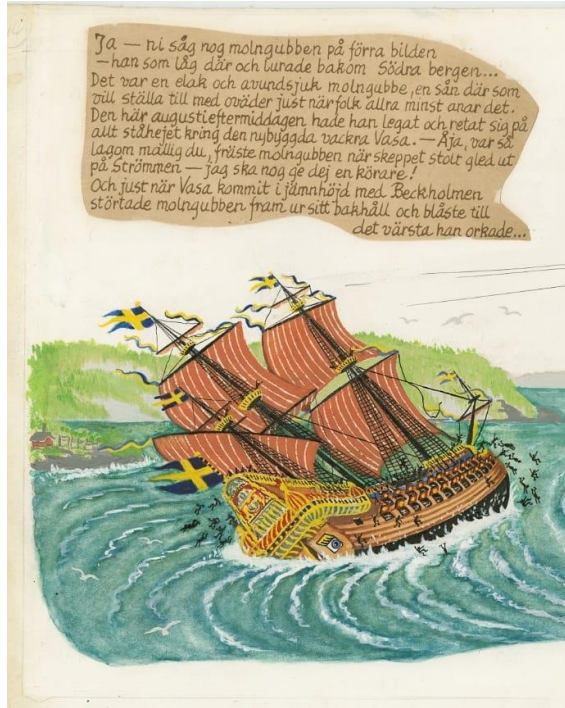 Ja — ni såg nog molngubben på förra bilden
— han som låg där och lurade bakom Södra bergen...
Det var en elak och avundsjuk molngubbe, en sån där som
vill ställa till med oväder just när folk allra minst anar det.
Den här augustieftermiddagen hade han legat och retat sig på
allt ståhejet kring den nybyggda vackra Vasa. — Åja, var så
lagom mallig du, fräste molngubben när skeppet stolt gled ut
på Strömmen — jag ska nog ge dej en körare!
Och just när Vasa kommit i jämnhöjd med Beckholmen
störtade molngubben fram ur sitt bakhåll och blåste till
det värsta han orkade...